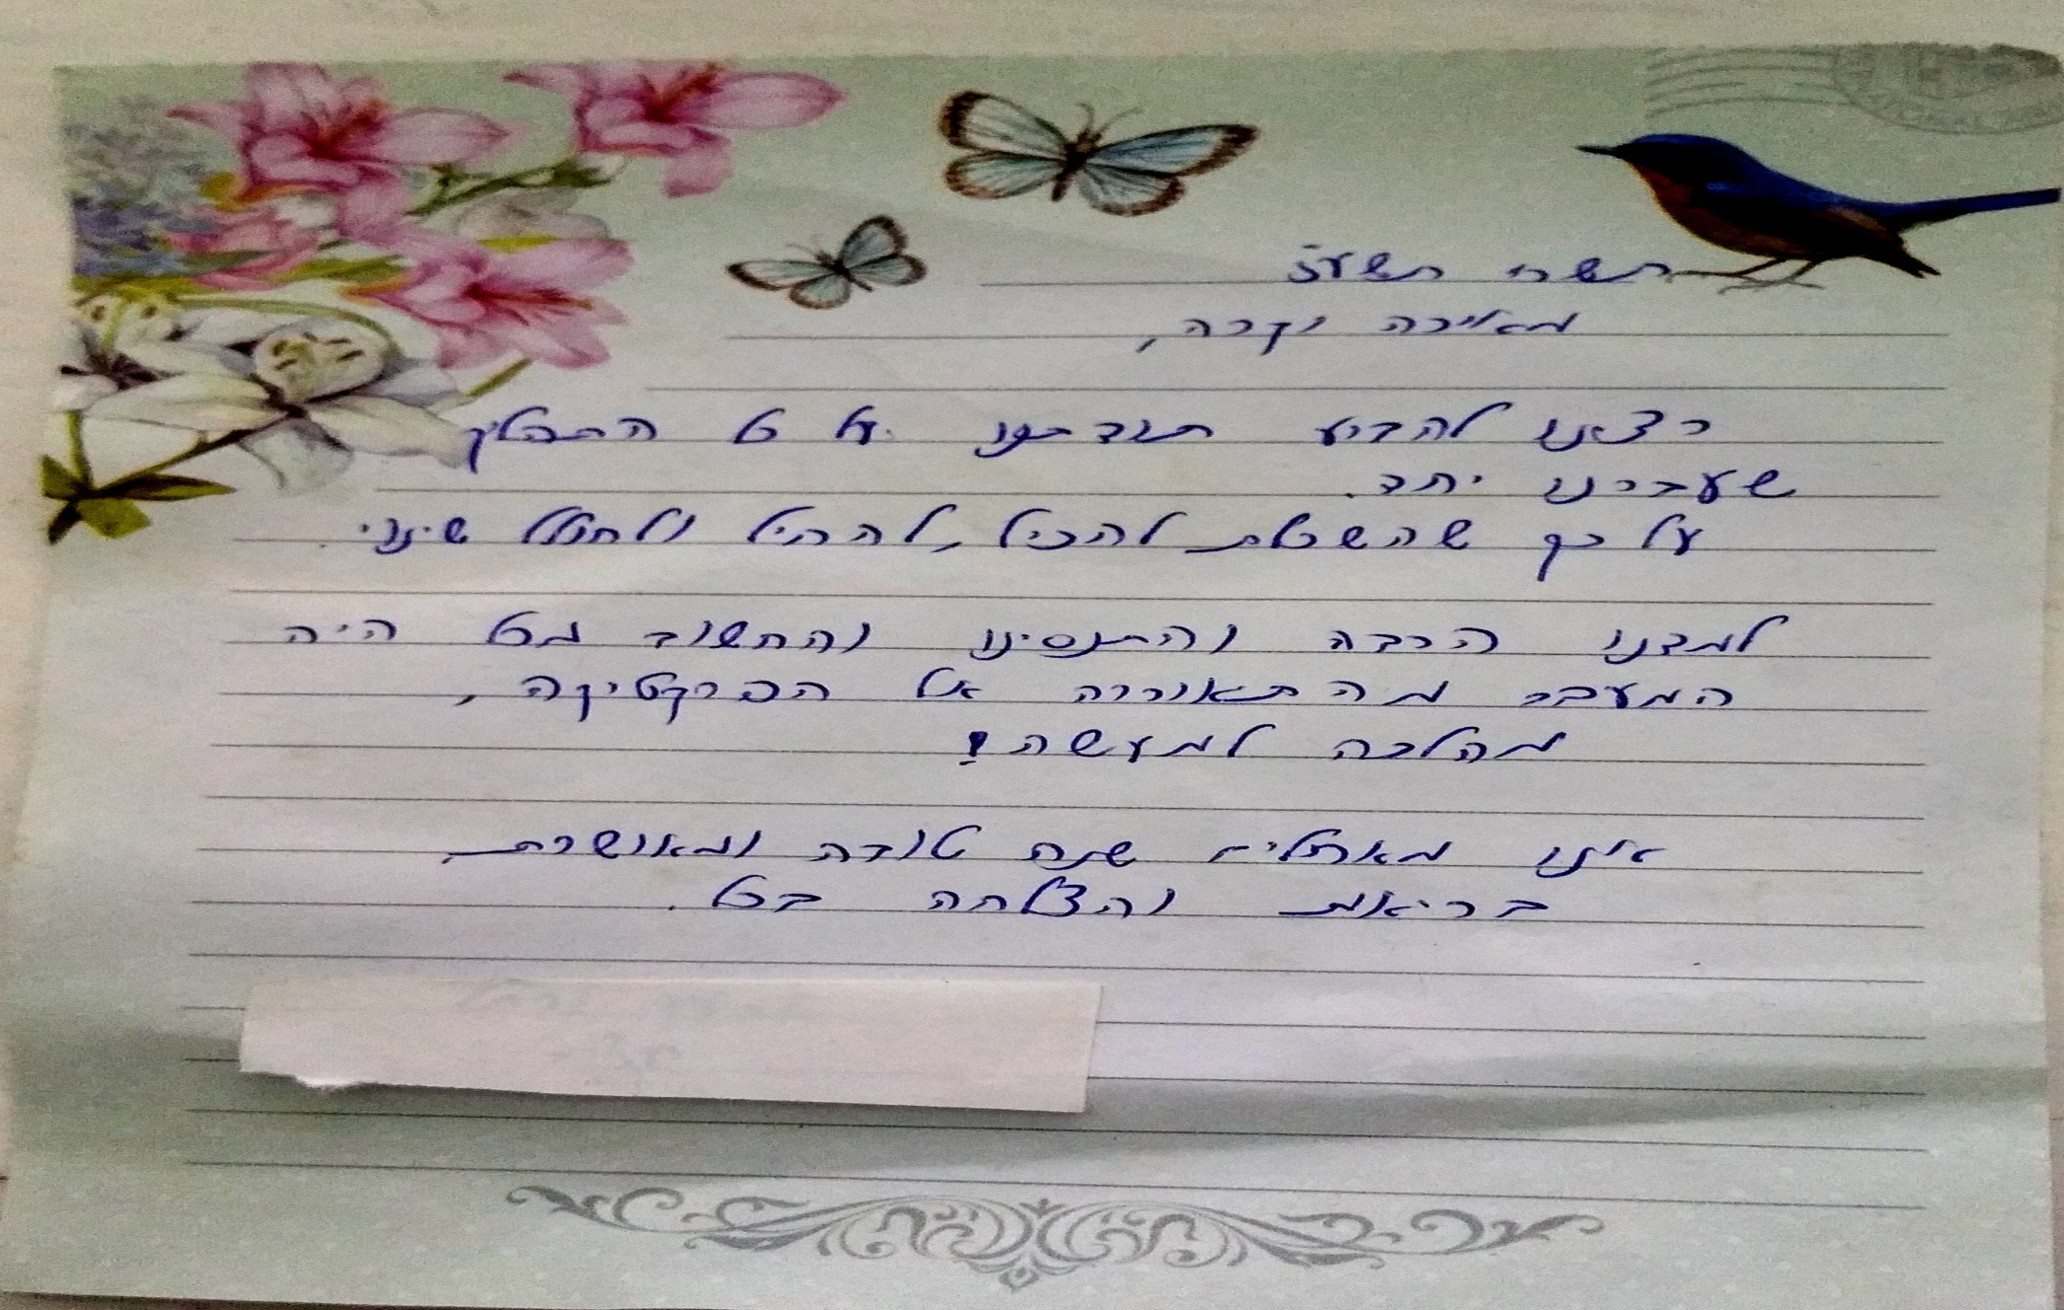 תשרי תשע"ז
מאירה יקרה,
רצינו להביע תודתנו על כל התהליך
שעברנו יחד.
על כך שהשכלת להכיל, להביל ולחולל שינוי.
למדנו הרבה והתנסינו והחשוב מכל היה
המעבר מהתאוריה אל הפרקטיקה,
מהלכה למעשה!
אנו מאחלים שנה טובה ומאושרת,
בריאות והצלחה בכל.